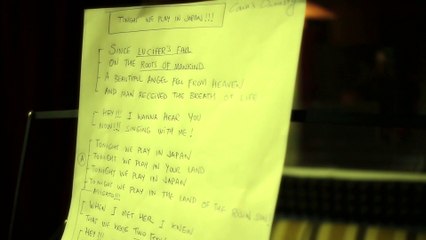 TONIGHT WE PLAY IN JAPAN!!!
SINCE LUCIFER'S FALL
ON THE ROOTS OF MANKIND
A BEAUTIFUL ANGEL FELL FROM HEAVEN!
AND MAN RECEIVED THE BREATH OF LIFE
HEY!!! I WANNA HEAR YOU
NOW!!! SINGING WITH ME!
TONIGHT WE PLAY IN JAPAN
TONIGHT WE PLAY IN YOUR LAND
A TONIGHT WE PLAY IN JAPAN
TONIGHT WE PLAY IN THE LAND OF THE RISIN SUN
WHEN I MET HER I KNEW
THAT WE WERE TWO
HEY!!!